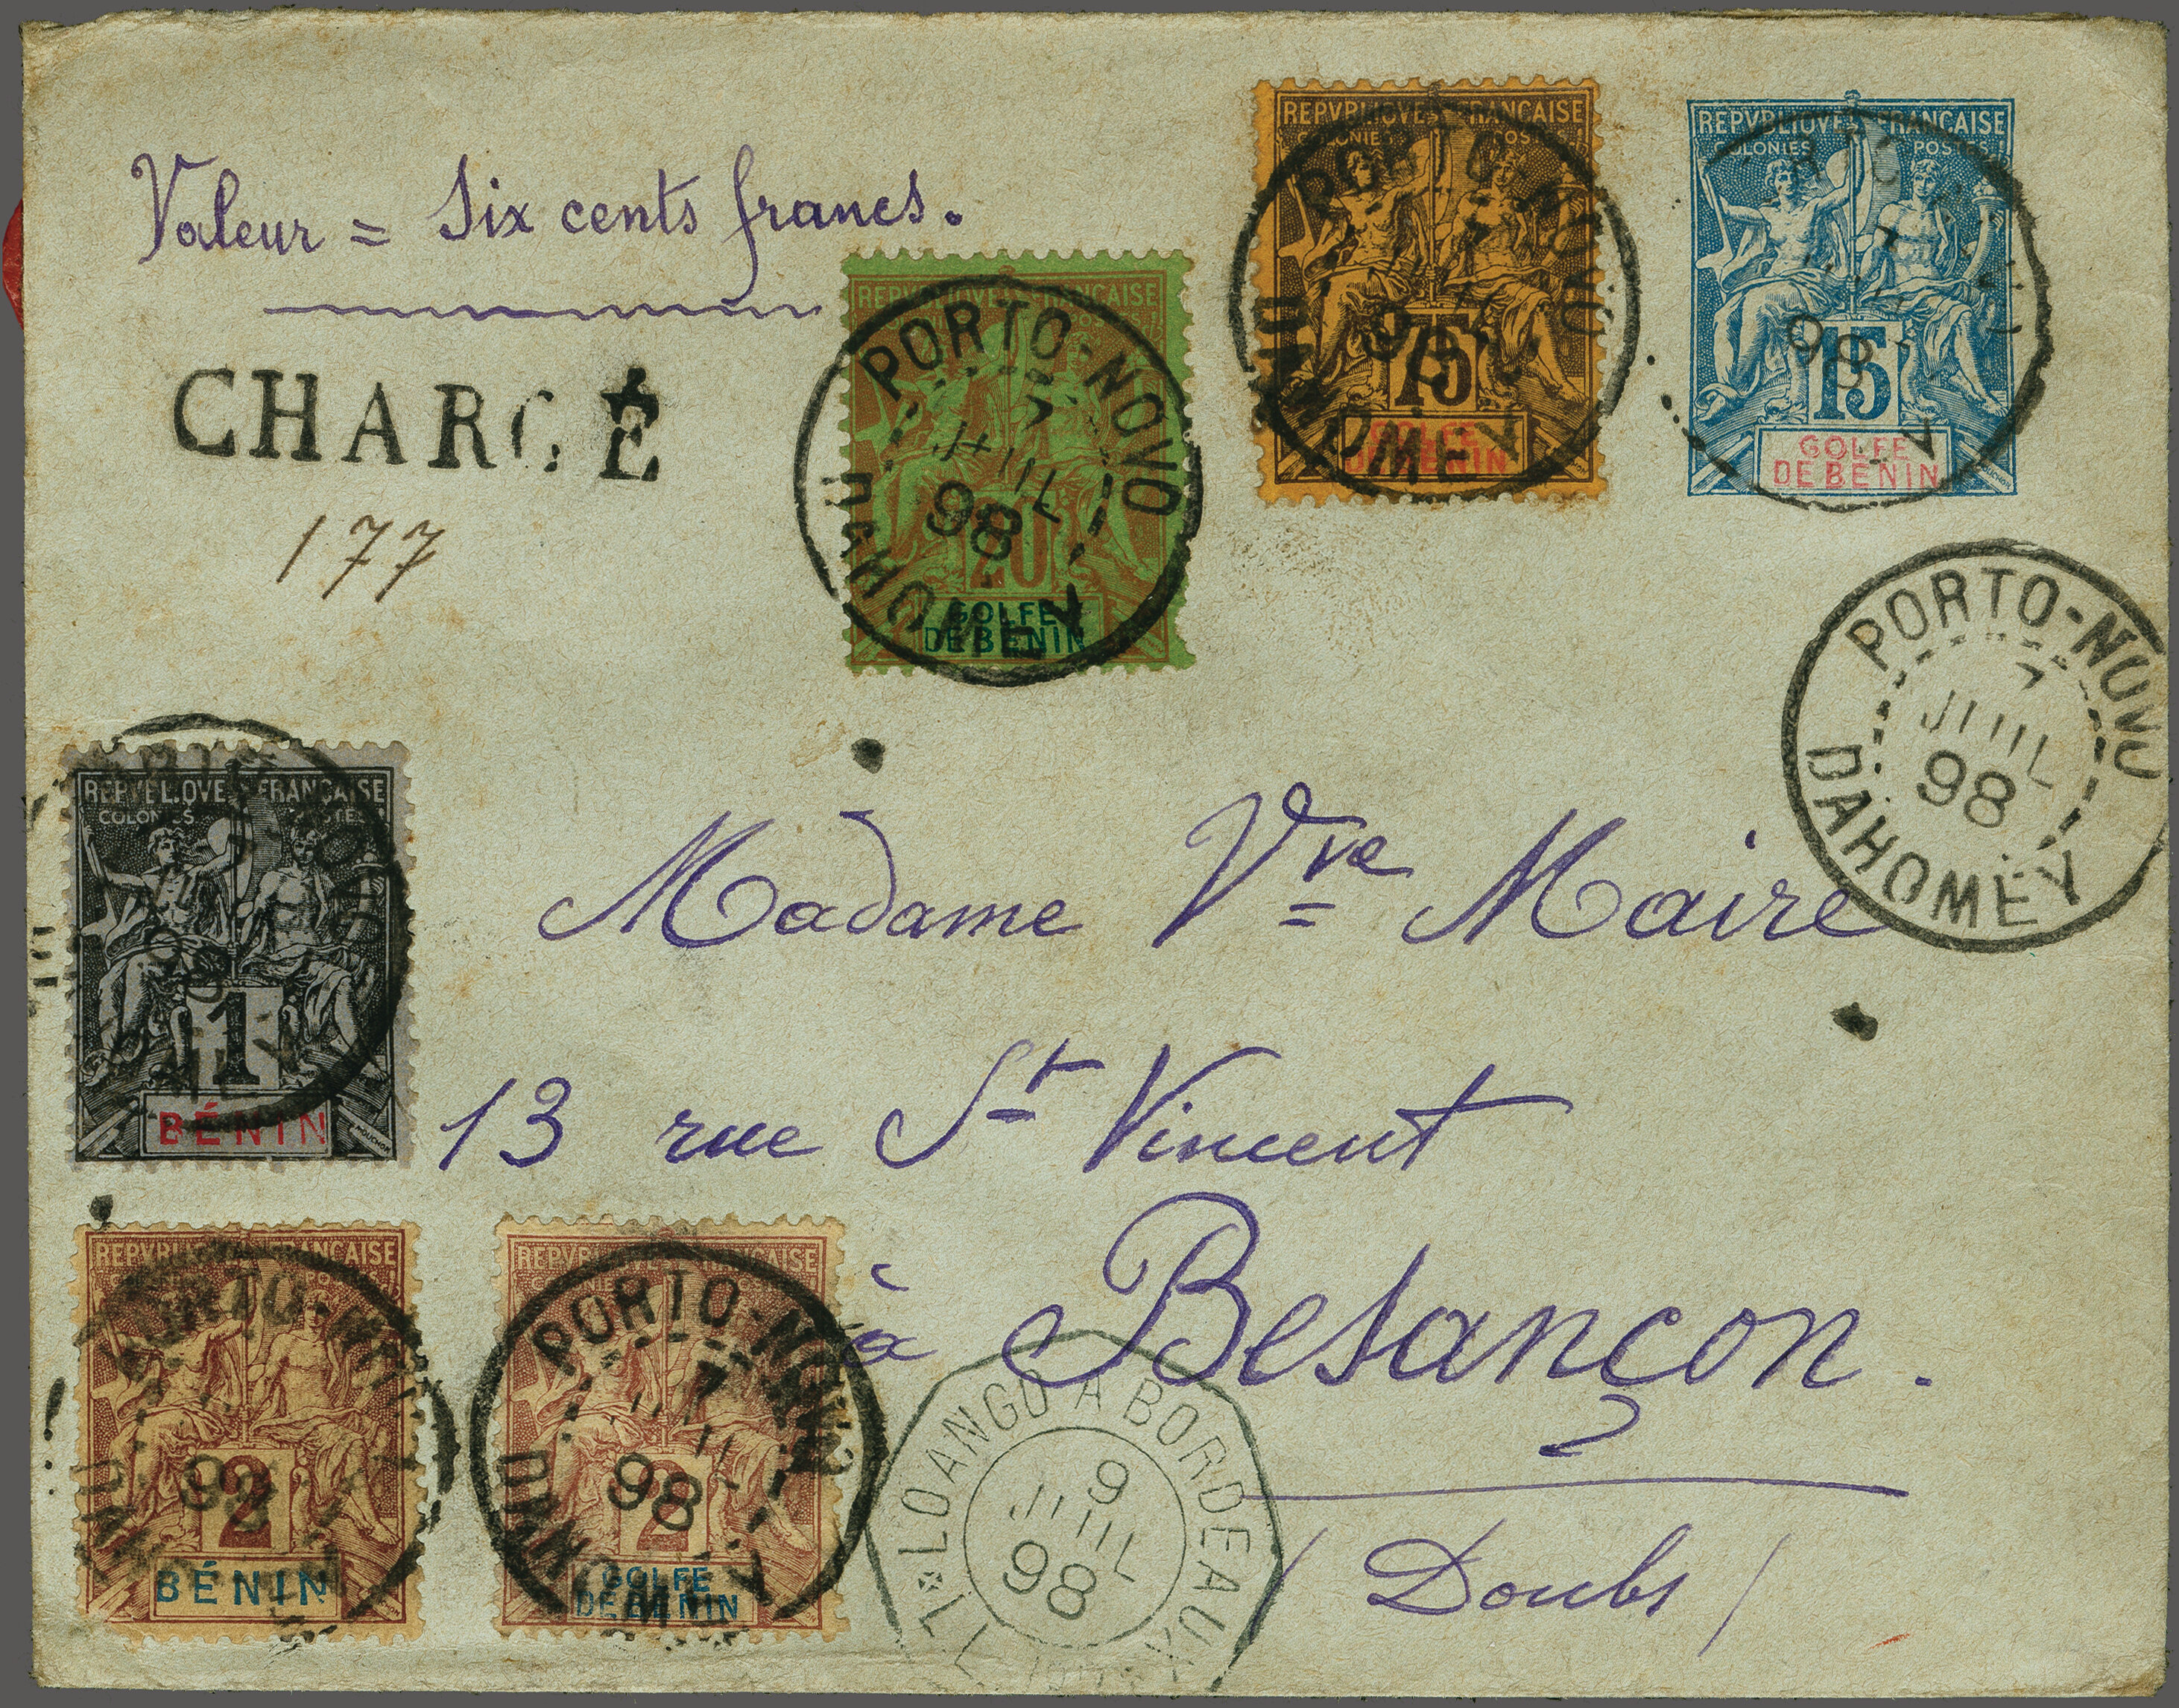 Valeur = Six cents francs.
CHARGÉ
177
REPVBLIQVE FRANÇAISE
COLONIES POSTES
75
GOLFE
DE BENIN
REPVBLIQVE FRANÇAISE
COLONIES POSTES
15
GOLFE
DE BENIN
REPVBLIQVE FRANÇAISE
20
GOLFE
DE BENIN
PORTO-NOVO
7
JUIL
98
DAHOMEY
PORTO-NOVO
7
JUIL
98
DAHOMEY
PORTO-NOVO
7
98
DAHOMEY
7
98
REPVBLIQVE FRANÇAISE
COLONIES POSTES
1
BÉNIN
MOUCHON
Madame Vve Maire
13 rue St Vincent
à Besançon.
(Doubs)
REPVBLIQVE FRANÇAISE
2
BÉNIN
PORTO-NOVO
98
REPVBLIQVE FRANÇAISE
2
GOLFE
DE BENIN
PORTO-NOVO
7
98
LOANGO A BORDEAUX
9
JUIL
98
L.L